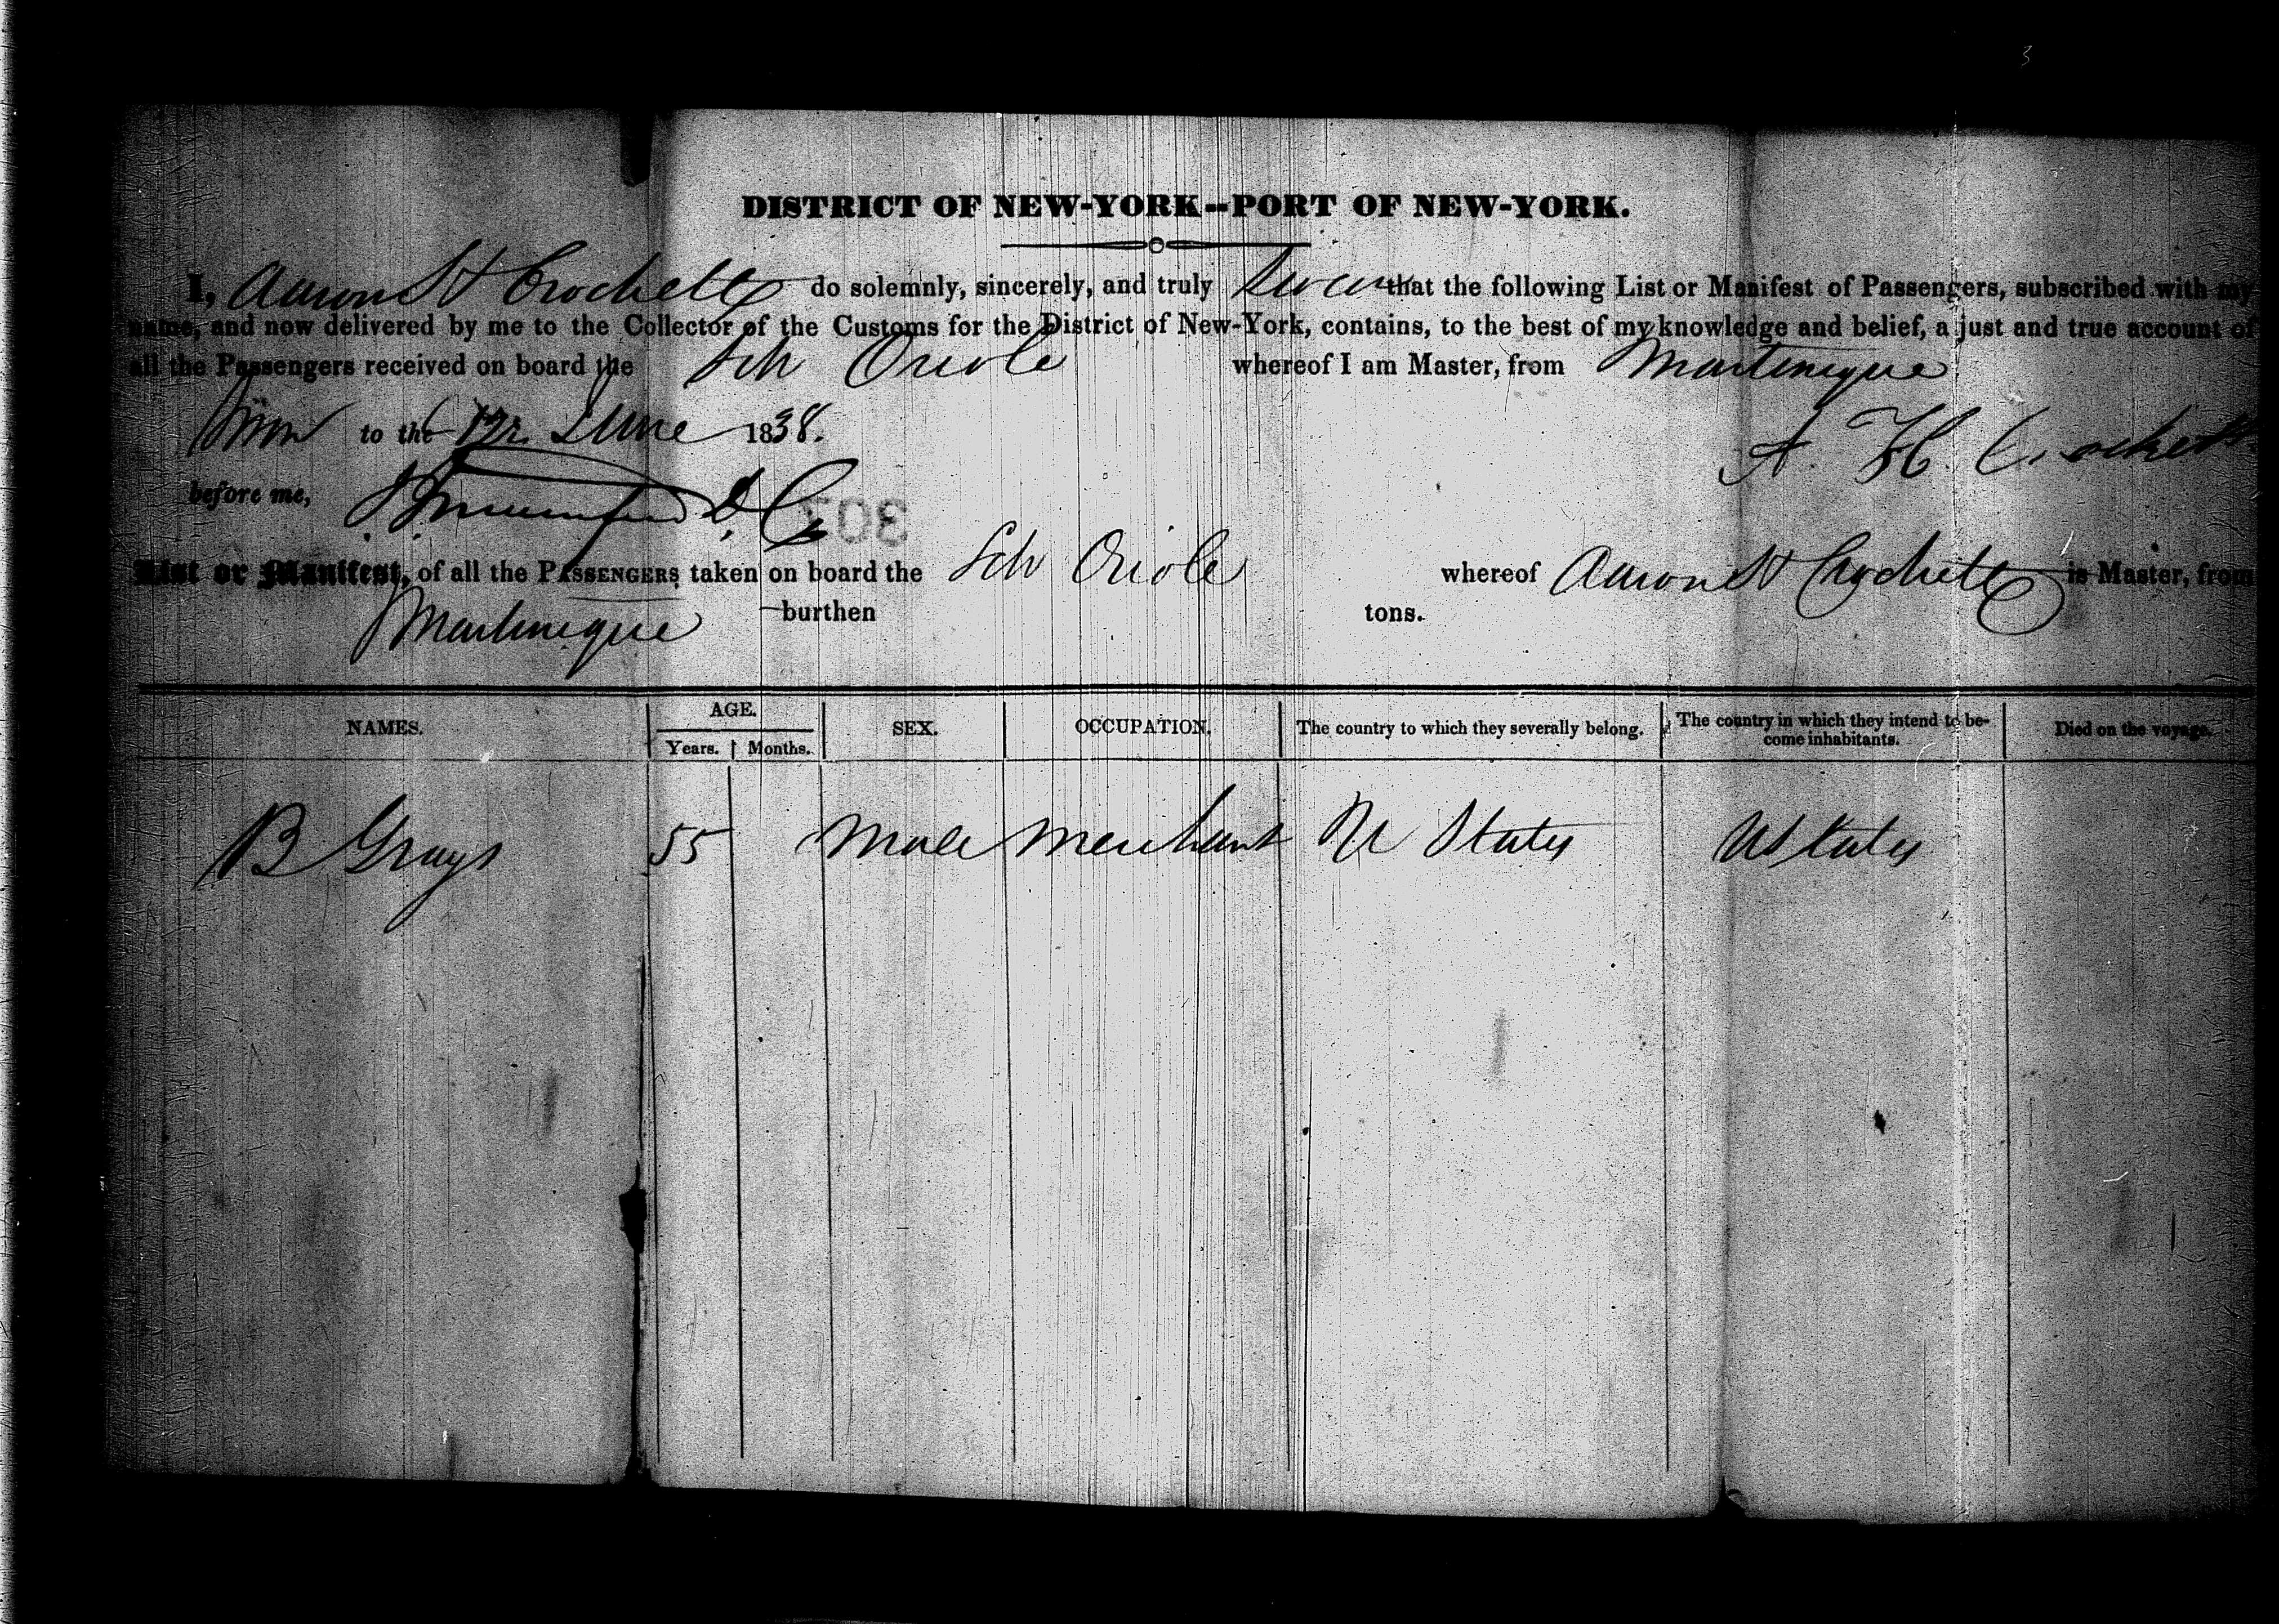 3
DISTRICT OF NEW-YORK--PORT OF NEW-YORK.
I, Aaron H Crockett do solemnly, sincerely, and truly swear that the following List or Manifest of Passengers, subscribed with my
name, and now delivered by me to the Collector of the Customs for the District of New-York, contains, to the best of my knowledge and belief, a just and true account of
all the Passengers received on board the Sch Oriole whereof I am Master, from Martinique
Sworn to the 12 June 1838.
A. H. Crockett
before me, D. C.
List or Manifest, of all the PASSENGERS taken on board the Sch Oriole whereof Aaron H Crockett is Master, from
Martinique burthen tons.
NAMES. AGE. Years. Months. SEX. OCCUPATION. The country to which they severally belong. The country in which they intend to be-
come inhabitants. Died on the voyage.
B Grays 55 Male Merchant U States U States